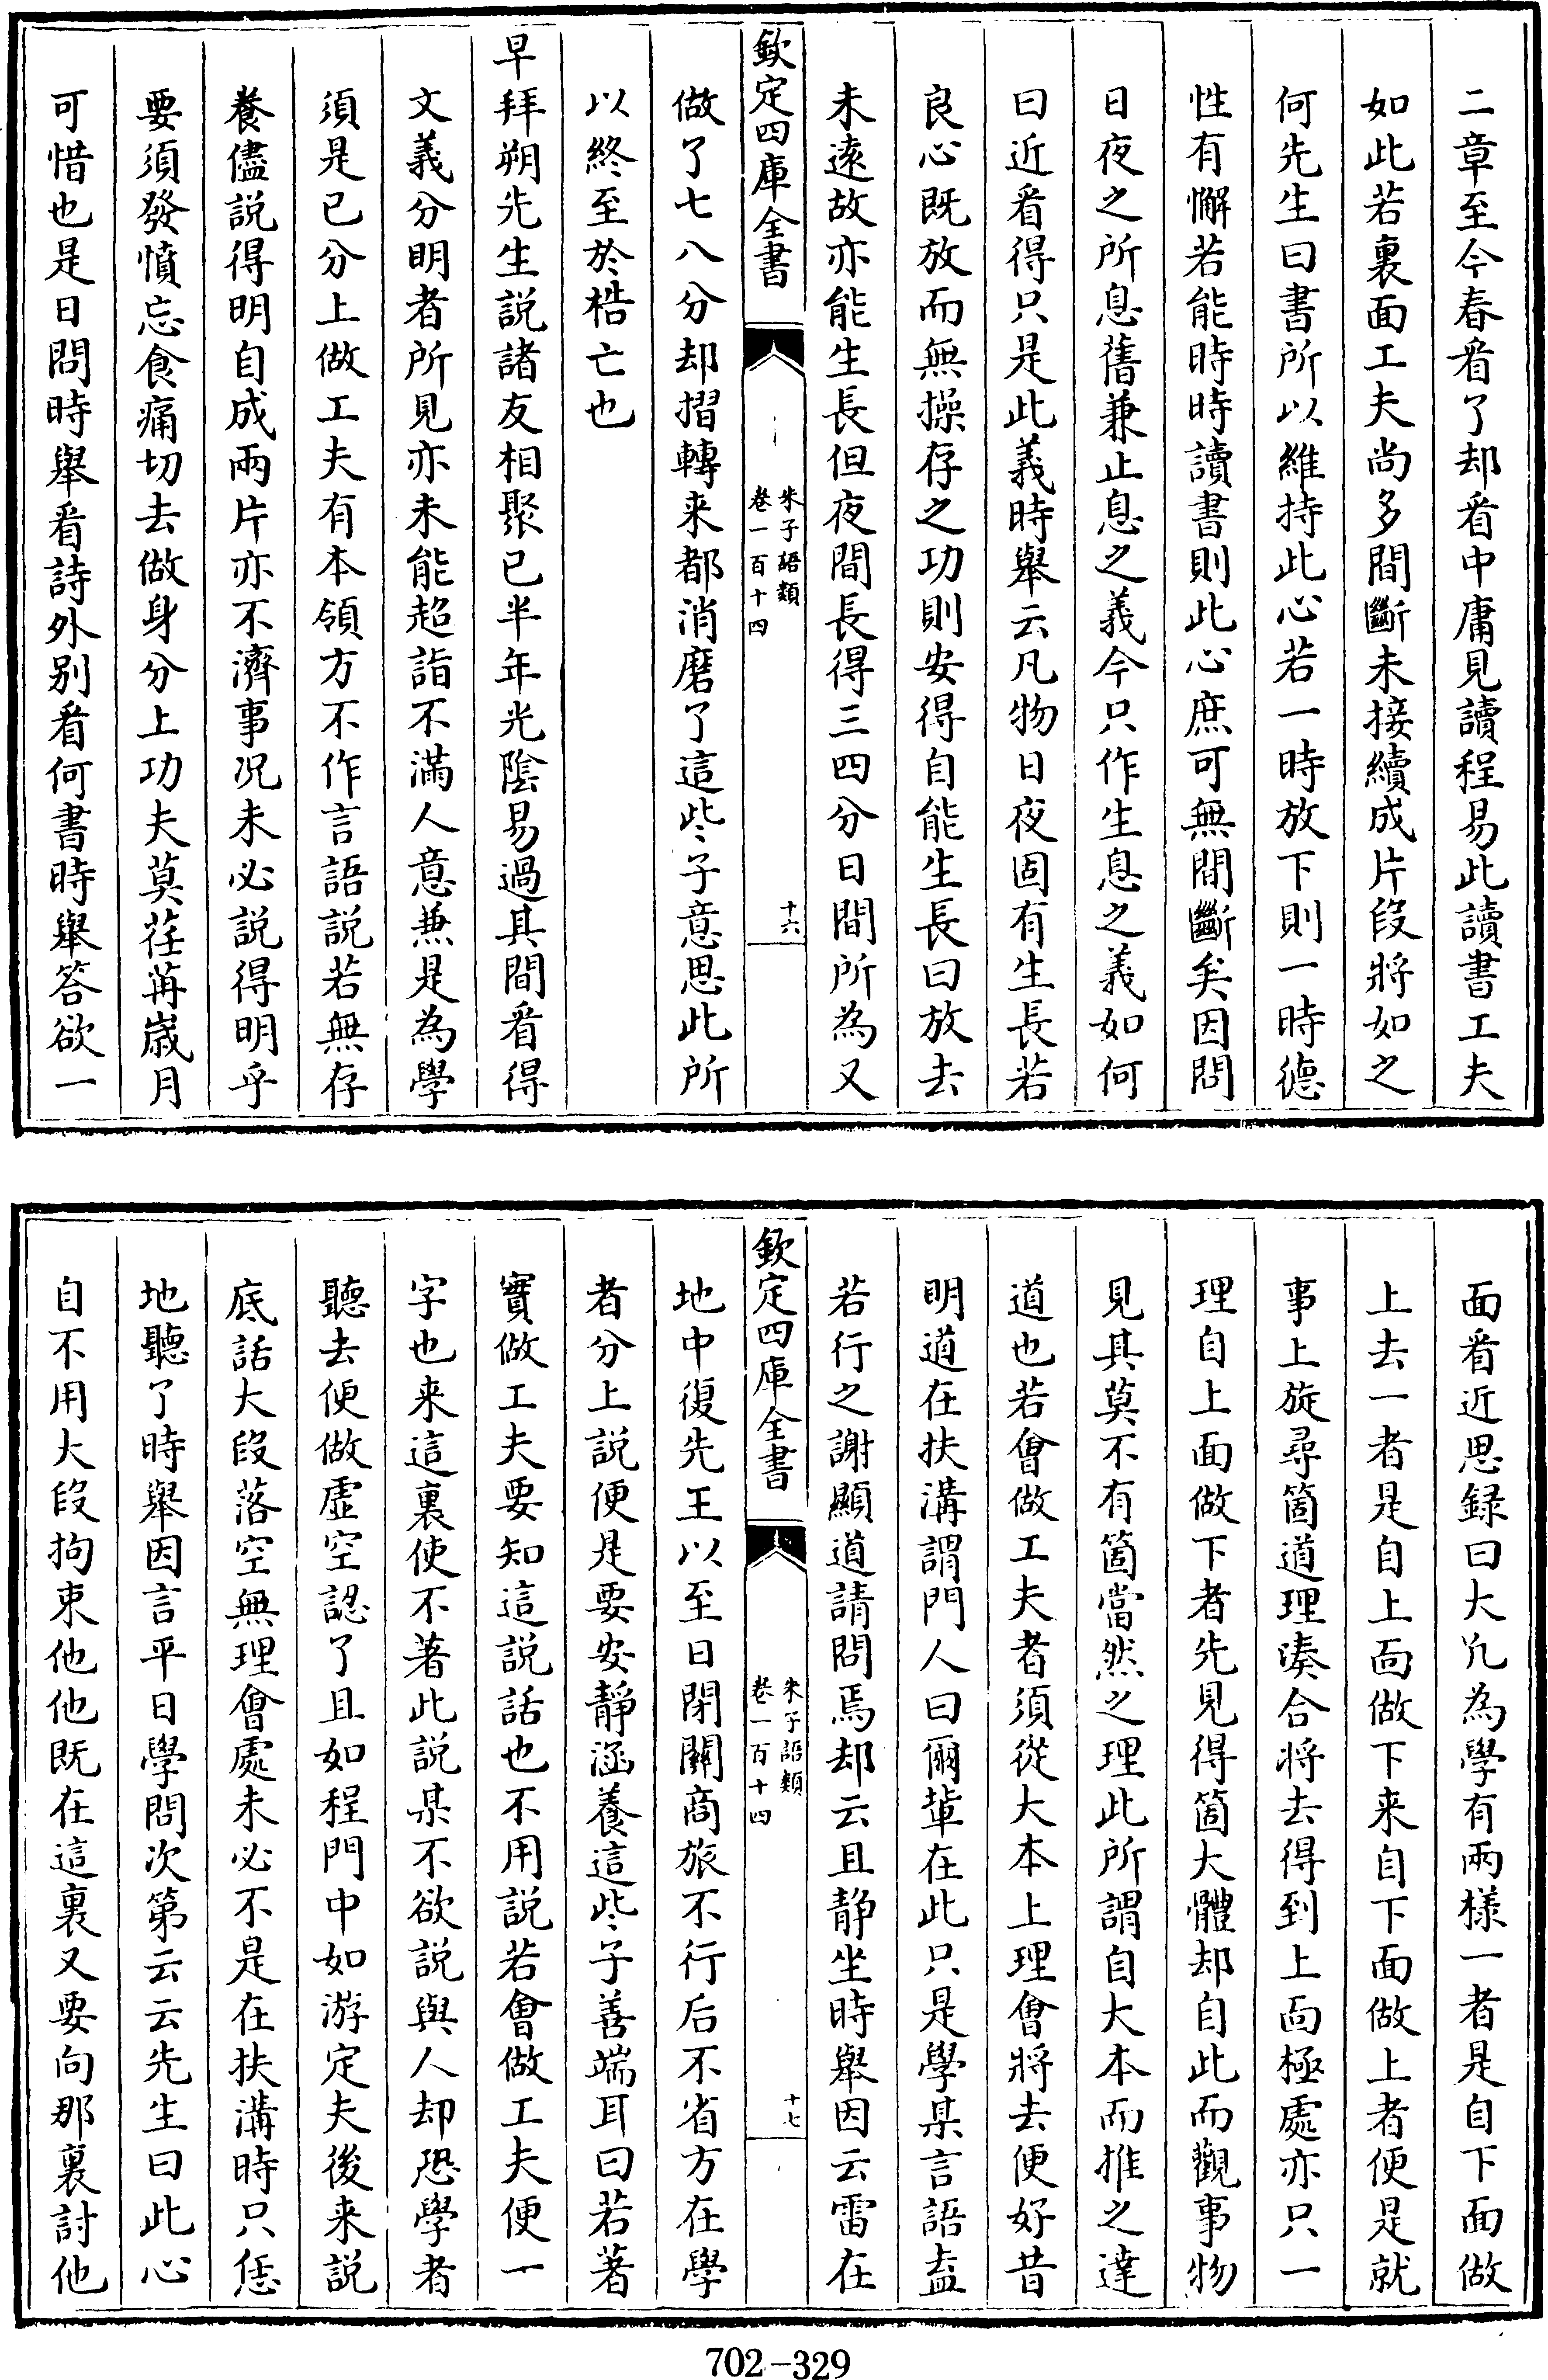 二章至今春看了却看中庸見讀程易此讀書工夫
如此若裏面工夫尚多間斷未接續成片段將如之
何先生曰書所以維持此心若一時放下則一時德
性有懈若能時時讀書則此心庶可無間斷矣因問
日夜之所息舊兼止息之義今只作生息之義如何
曰近看得只是此義時舉云凡物日夜固有生長若
良心既放而無操存之功則安得自能生長曰放去
未遠故亦能生長但夜間長得三四分日間所為又
欽定四庫全書
朱子語類
卷一百十四
十六
做了七八分却摺轉来都消磨了這些子意思此所
以終至於梏亡也
早拜朔先生說諸友相聚已半年光陰易過其間看得
文義分明者所見亦未能超詣不滿人意兼是為學
須是已分上做工夫有本領方不作言語說若無存
養儘說得明自成兩片亦不濟事况未必說得明乎
要須發憤忘食痛切去做身分上功夫莫荏苒歲月
可惜也是日問時舉看詩外别看何書時舉答欲一
面看近思録曰大凡為學有兩樣一者是自下面做
上去一者是自上面做下来自下面做上者便是就
事上旋尋箇道理湊合將去得到上面極處亦只一
理自上面做下者先見得箇大體却自此而觀事物
見其莫不有箇當然之理此所謂自大本而推之達
道也若會做工夫者須從大本上理會將去便好昔
明道在扶溝謂門人曰爾輩在此只是學某言語盍
若行之謝顯道請問焉却云且静坐時舉因云雷在
欽定四庫全書
朱子語類
卷一百十四
十七
地中復先王以至日閉關商旅不行后不省方在學
者分上說便是要安靜涵養這些子善端耳曰若著
實做工夫要知這說話也不用說若會做工夫便一
字也来這裏使不著此說某不欲說與人却恐學者
聽去便做虚空認了且如程門中如游定夫後来說
底話大段落空無理會處未必不是在扶溝時只恁
地聽了時舉因言平日學問次第云云先生曰此心
自不用大段拘束他他既在這裏又要向那裏討他
702-329